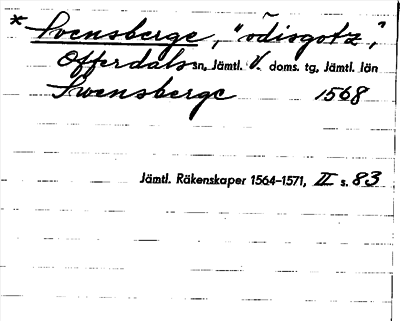 * Svensberge, "ödisgotz",
Offerdals sn, Jämtl. V. doms. tg, Jämtl. län
Swensberge 1568
Jämtl. Räkenskaper 1564-1571, II s. 83